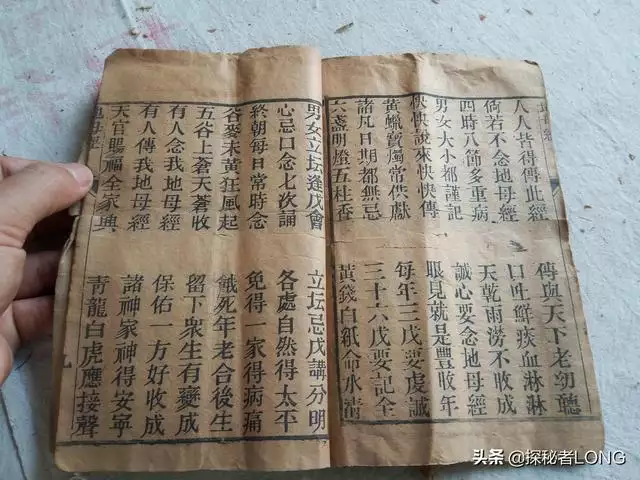 地母經
人人皆得傳此經 傳與天下老幼聽
倘若不念地母經 口吐鮮痰血淋淋
四時八節多重病 天乾雨澇不收成
男女大小都謹記 誠心要念地母經
快快說來快快傳 眼見就是豐收年
黃蠟寶燭常供獻 每年三戊要虔誠
諸凡日期都無忌 三十六戊要記全
六盞明燈五柱香 黃錢白紙命水清
男女立坛逢戊會 立坛忌戊講分明
心忌口念七次誦 各處自然得太平
終朝每日常時念 免得一家得病痛
谷麥未黃狂風起 餓死年老合後生
五谷上蒼天蒼收 留下衆生有變成
有人念我地母經 保佑一方好收成
有人傳我地母經 諸神家神得安寧
天官賜福全家興 青龍白虎應接聲
地母經 九
头条 @探秘者LONG